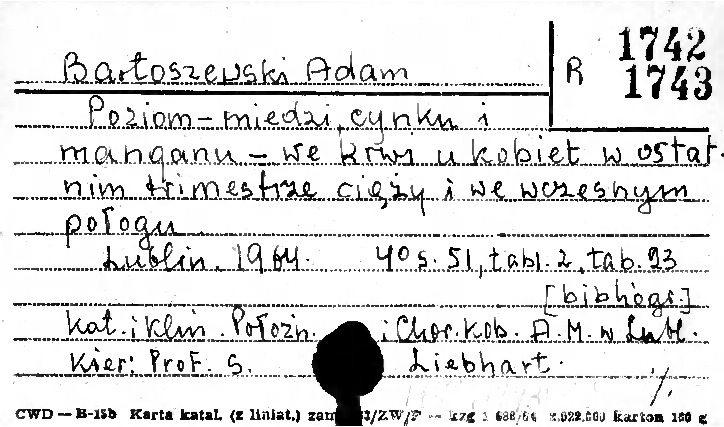 Bartoszewski Adam
R 1742
1743
Poziom – miedzi, cynku i
manganu – we krwi u kobiet w ostat-
nim trimestrze ciąży i we wczesnym
połogu
Lublin. 1964. 4° s. 51, tabl. 2, tab. 23
[bibliogr.]
Kat. i Klin. Położn. i Chor. Kob. A. M. w Lubl.
Kier: Prof. S. Liebhart.
CWD — B-15b Karta katal. (z liniat.) zam. 3/ZW/P — kzg 1 688/64 karton 180 g